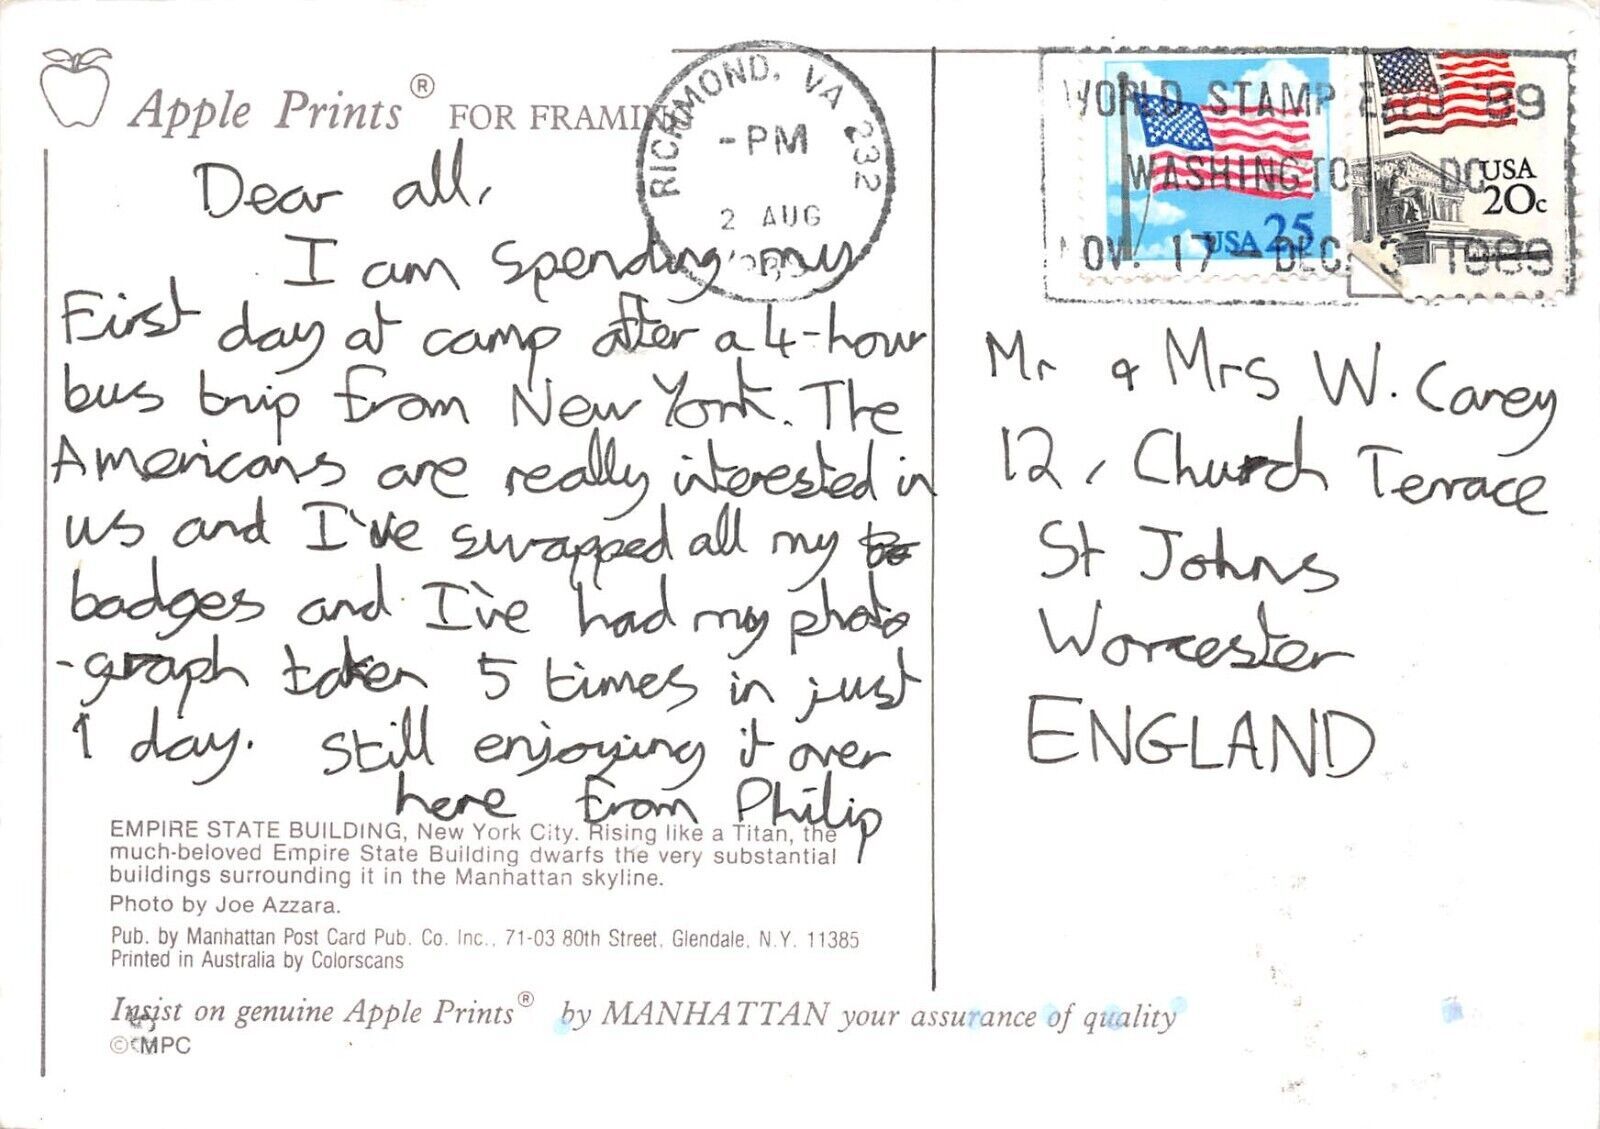 Apple Prints® FOR FRAMING
RICHMOND, VA 232
- PM
2 AUG
WORLD STAMP EXPO '89
WASHINGTON DC
NOV. 17 - DEC. 3 1989
USA 25
USA
20c
Dear all,
I am spending my
First day at camp after a 4-hour
bus trip from New York. The
Americans are really interested in
us and I've swapped all my
badges and I've had my photo
-graph taken 5 times in just
1 day. Still enjoying it over
here from Philip
Mr & Mrs W. Carey
12, Church Terrace
St Johns
Worcester
ENGLAND
EMPIRE STATE BUILDING, New York City. Rising like a Titan, the
much-beloved Empire State Building dwarfs the very substantial
buildings surrounding it in the Manhattan skyline.
Photo by Joe Azzara.
Pub. by Manhattan Post Card Pub. Co. Inc., 71-03 80th Street, Glendale, N.Y. 11385
Printed in Australia by Colorscans
Insist on genuine Apple Prints® by MANHATTAN your assurance of quality
© MPC